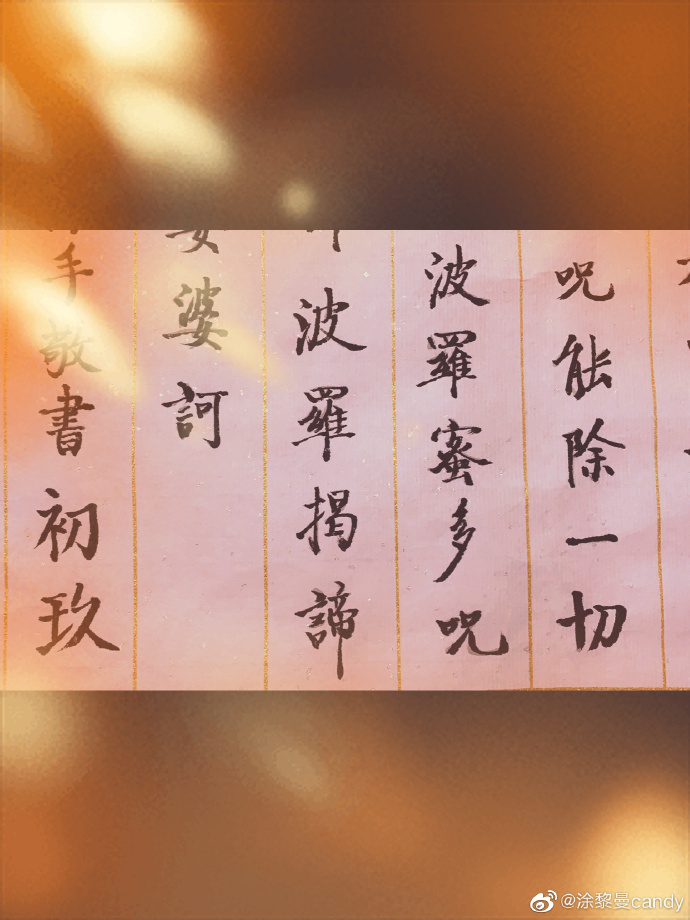 呪能除一切
波羅蜜多呪
波羅揭諦
婆訶
手敬書初玖
@涂黎曼candy